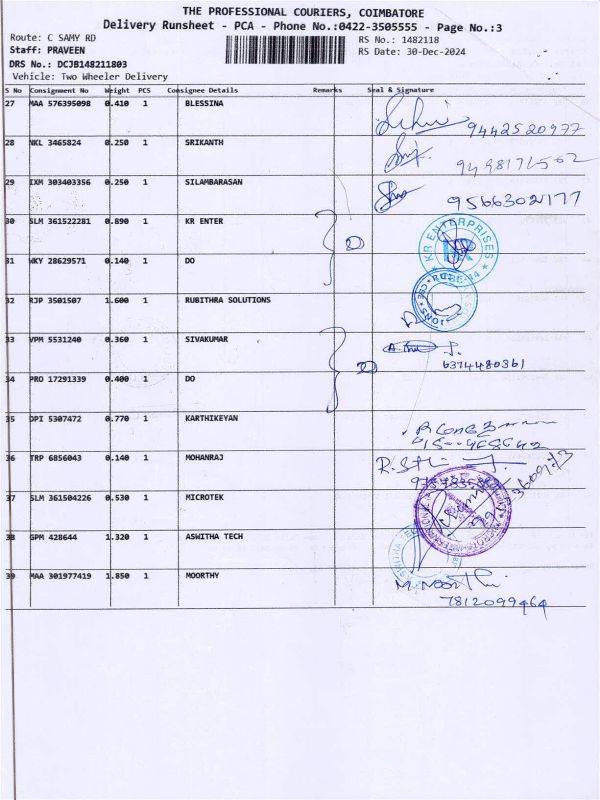 THE PROFESSIONAL COURIERS, COIMBATORE
Delivery Runsheet - PCA - Phone No.:0422-3505555 - Page No.:3
Route: C SAMY RD
RS No.: 1482118
Staff: PRAVEEN
RS Date: 30-Dec-2024
DRS No.: DCJB148211803
Vehicle: Two Wheeler Delivery
S No Consignment No Weight PCS Consignee Details Remarks Seal & Signature
27 MAA 576395098 0.410 1 BLESSINA
9442520977
28 NKL 3465824 0.250 1 SRIKANTH
29 IXM 303403356 0.250 1 SILAMBARASAN
9566302177
30 SLM 361522281 0.890 1 KR ENTER
KR ENTERPRISES
31 WKY 28629571 0.140 1 DO
32 RJP 3501507 1.600 1 RUBITHRA SOLUTIONS
33 VPM 5531240 0.360 1 SIVAKUMAR
6374480361
34 PRO 17291339 0.400 1 DO
35 DPI 5307472 0.770 1 KARTHIKEYAN
36 TRP 6856043 0.140 1 MOHANRAJ
37 SLM 361504226 0.530 1 MICROTEK
38 GPM 428644 1.320 1 ASWITHA TECH
39 MAA 301977419 1.850 1 MOORTHY
7812099464